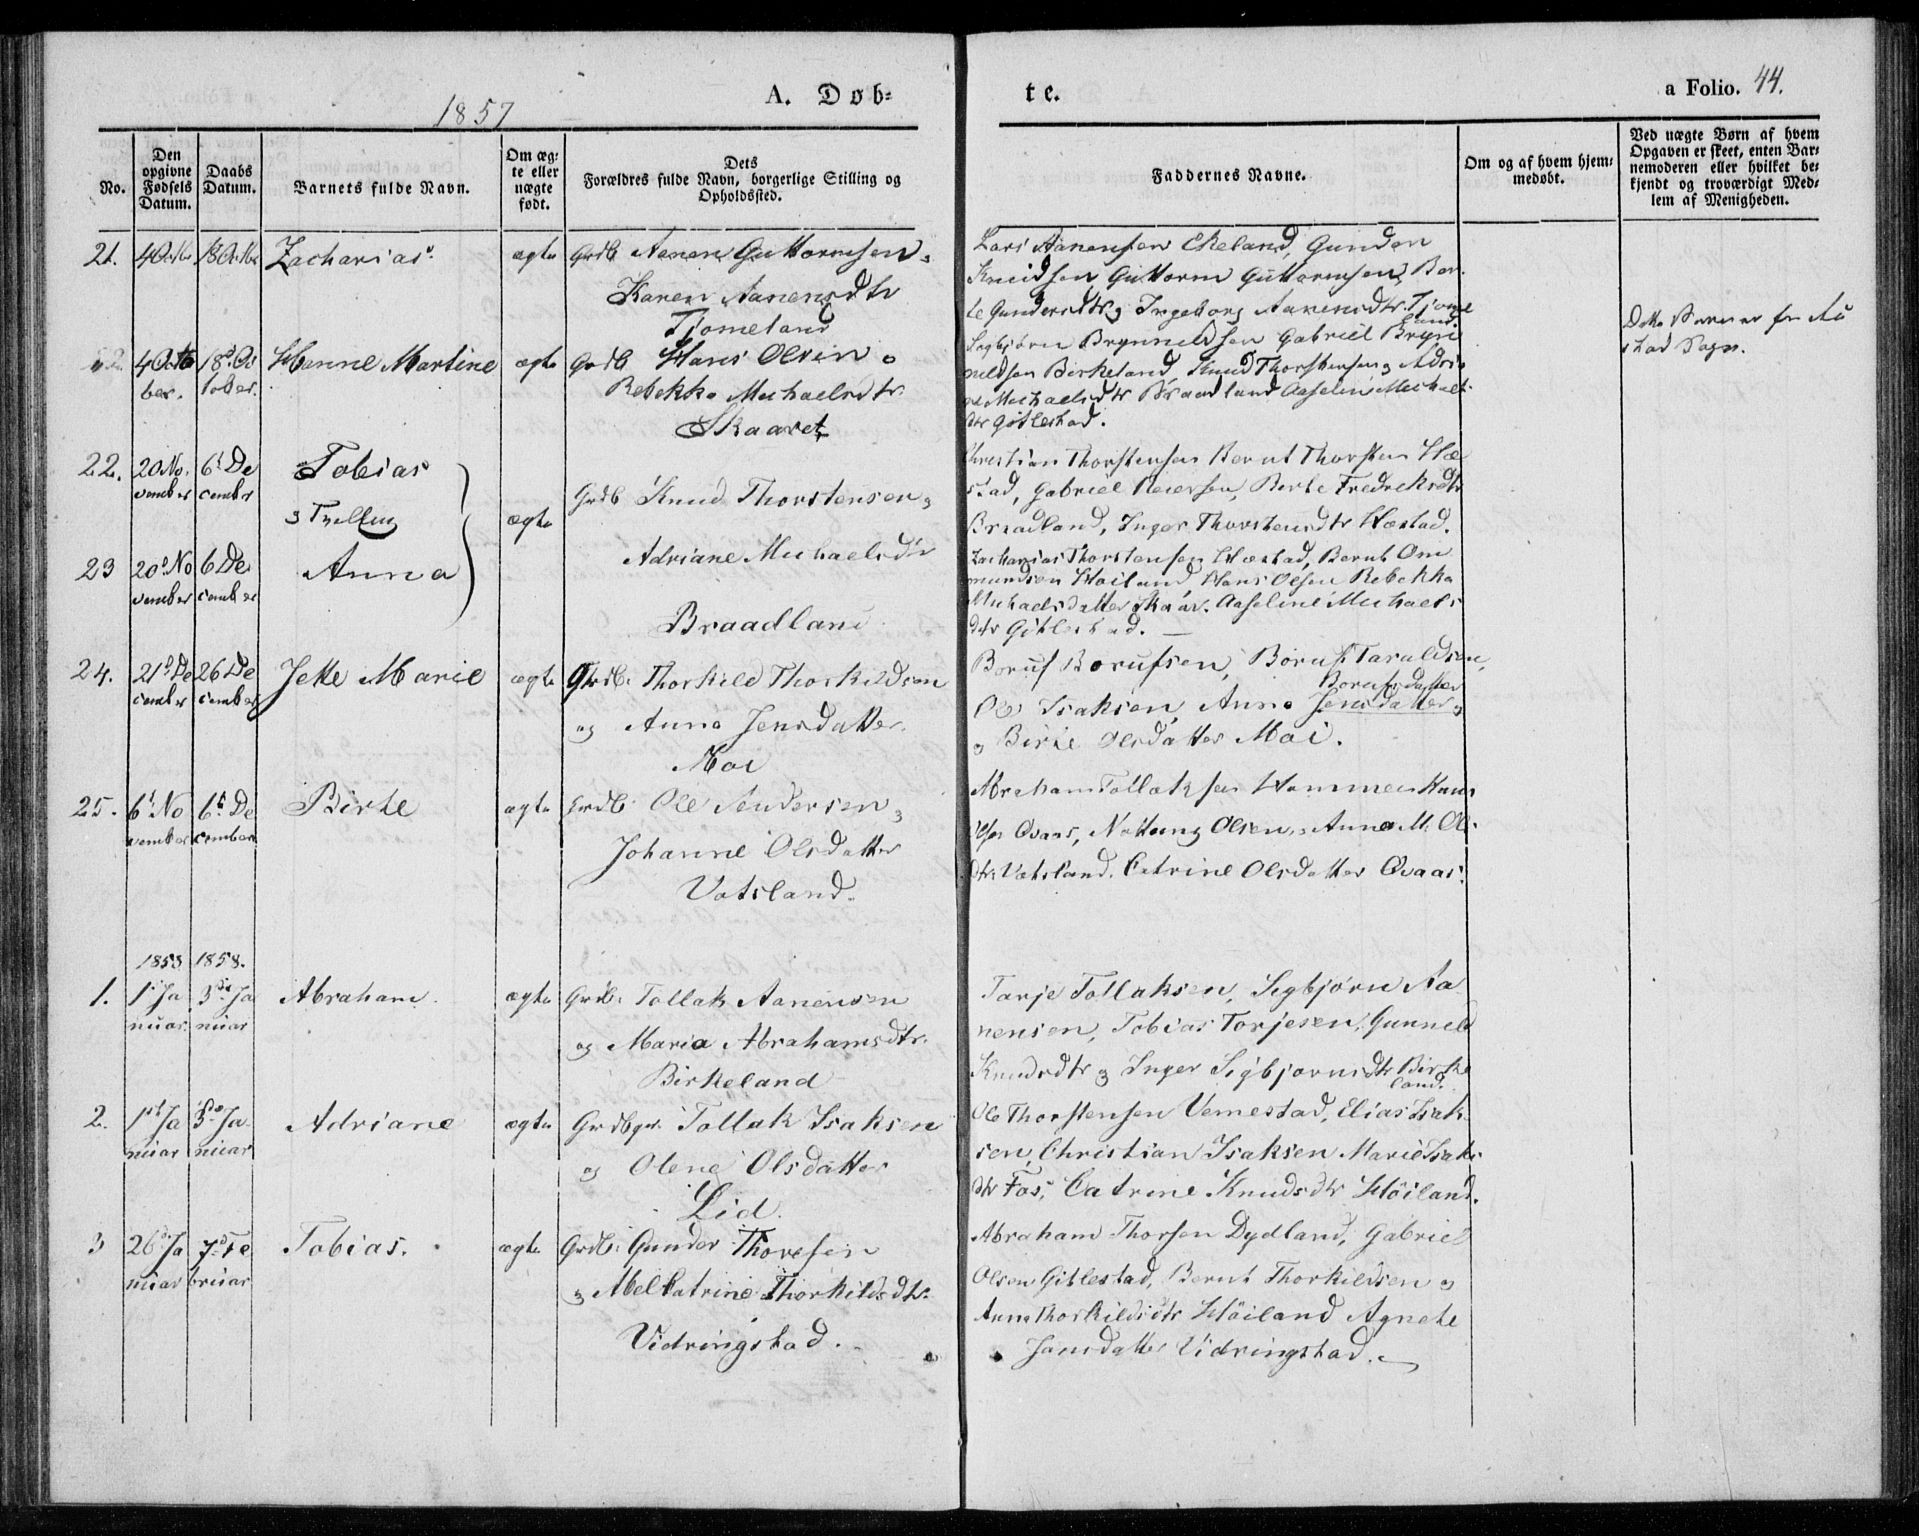 1857
A. Døb-
te.
a Folio. 44.
No.
Den opgivne Fødsels Datum.
Daabs Datum.
Barnets fulde Navn.
Om ægte eller uægte født.
Dets Forældres fulde Navn, borgerlige Stilling og Opholdssted.
Faddernes Navne.
Om og af hvem hjemmedøbt.
Ved uægte Børn af hvem Opgaven er skeet, enten Barnemoderen eller hvilket bekjendt og troværdigt Medlem af Menigheden.
21. 4 Octbr 18 Octbr Zacharias ægte Grdb Aanen Guttormsen
Karen Aanensdtr
Tjomeland
Lars Aanensen Ekeland, Gunder
Knudsen Guttorm Guttormsen, Ber-
te Gundersdtr og Ingeborg Aanensdtr Tjome
land.
4 Octo 18d Oc Hanne Martine ægte Grdb Hans Olsen o
ber. tober.
Rebekka Michaelsdtr
Skaaret
Sigbjørn Brynnildsen Gabriel Bryn
nildsen Birkeland, Knud Thorstensen og Adri
ane Michaelsdtr Braadland Aaseline Michaels
dtr Gitlestad.
22. 20 No 6t De Tobias
vember cember
Grdb Knud Thorstensen og
og Tvilling ægte
23 20d No 6 De Anna
vember cember
Adriane Michaelsdtr
Braadland
Christian Thorstensen Bernt Thorsten Hæ
stad, Gabriel Reiersen, Berte Fredriksdtr
Braadland, Inger Thorstensdtr Hæstad.
Zacharias Thorstensen Hæstad, Bernt Om
mundsen Høiland Hans Olsen Rebekka
Michaelsdatter Skaar. Aaseline Michaels
dtr Gitlestad.
24. 21d De 26 De Jette Marie ægte Grdb. Thorkild Thorkildsen
cember cember
og Anna Jensdatter
Moi
Boruf Borufsen, Boruf Taraldsen,
Borufsdatter
Ole Isaksen, Anna Jensdatter og
og Birte Olsdatter Moi.
25. 6t No 6te De Birte ægte Grdb. Ole Andersen og
vember cember
Johanne Olsdatter
Vatsland.
Abraham Tollaksen Hommen Hans
Qvaas, Nottung Olsen, Anna M. Ols
dtr Vatsland. Catrine Olsdatter Qvaas.
1858 1858.
1. 1t Ja 3die Ja Abraham. ægte Grdb. Tollak Aanensen
nuar nuar
og Maria Abrahamsdtr.
Birkeland
Tarje Tollaksen, Sigbjørn Aa
nensen, Tobias Torjesen, Gunneld
Knudsdtr og Inger Sigbjørnsdtr Birke
land.
2. 1st Ja 3die Ja Adriane ægte Grdbgr Tollak Isaksen
nuar nuar
og Olene Olsdatter
Lid.
Ole Thorstensen Vemestad, Elias Isak
sen, Christian Isaksen Marie Isaks
dtr Fos, Catrine Knudsdtr Høiland.
3 26d Ja 7d Fe Tobias. ægte Grdb. Gunder Thoresen
nuar bruar
og Abel Catrine Thorkildsdtr.
Vidringstad.
Abraham Thorsen Dydland, Gabriel
Olsen Gitlestad, Bernt Thorkildsen og
Anna Thorkildsdtr Høiland Agnete
Jansdatter Vidringstad.
Dette Barn er fra Au
stad Sogn.